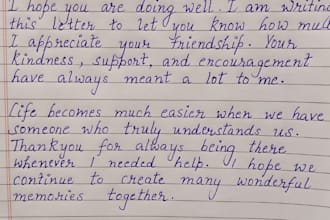 I hope you are doing well. I am writing
this letter to let you know how much
I appreciate your friendship. Your
kindness, support, and encouragement
have always meant a lot to me.
Life becomes much easier when we have
someone who truly understands us.
Thankyou for always being there
whenever I needed help. I hope we
continue to create many wonderful
memories together.